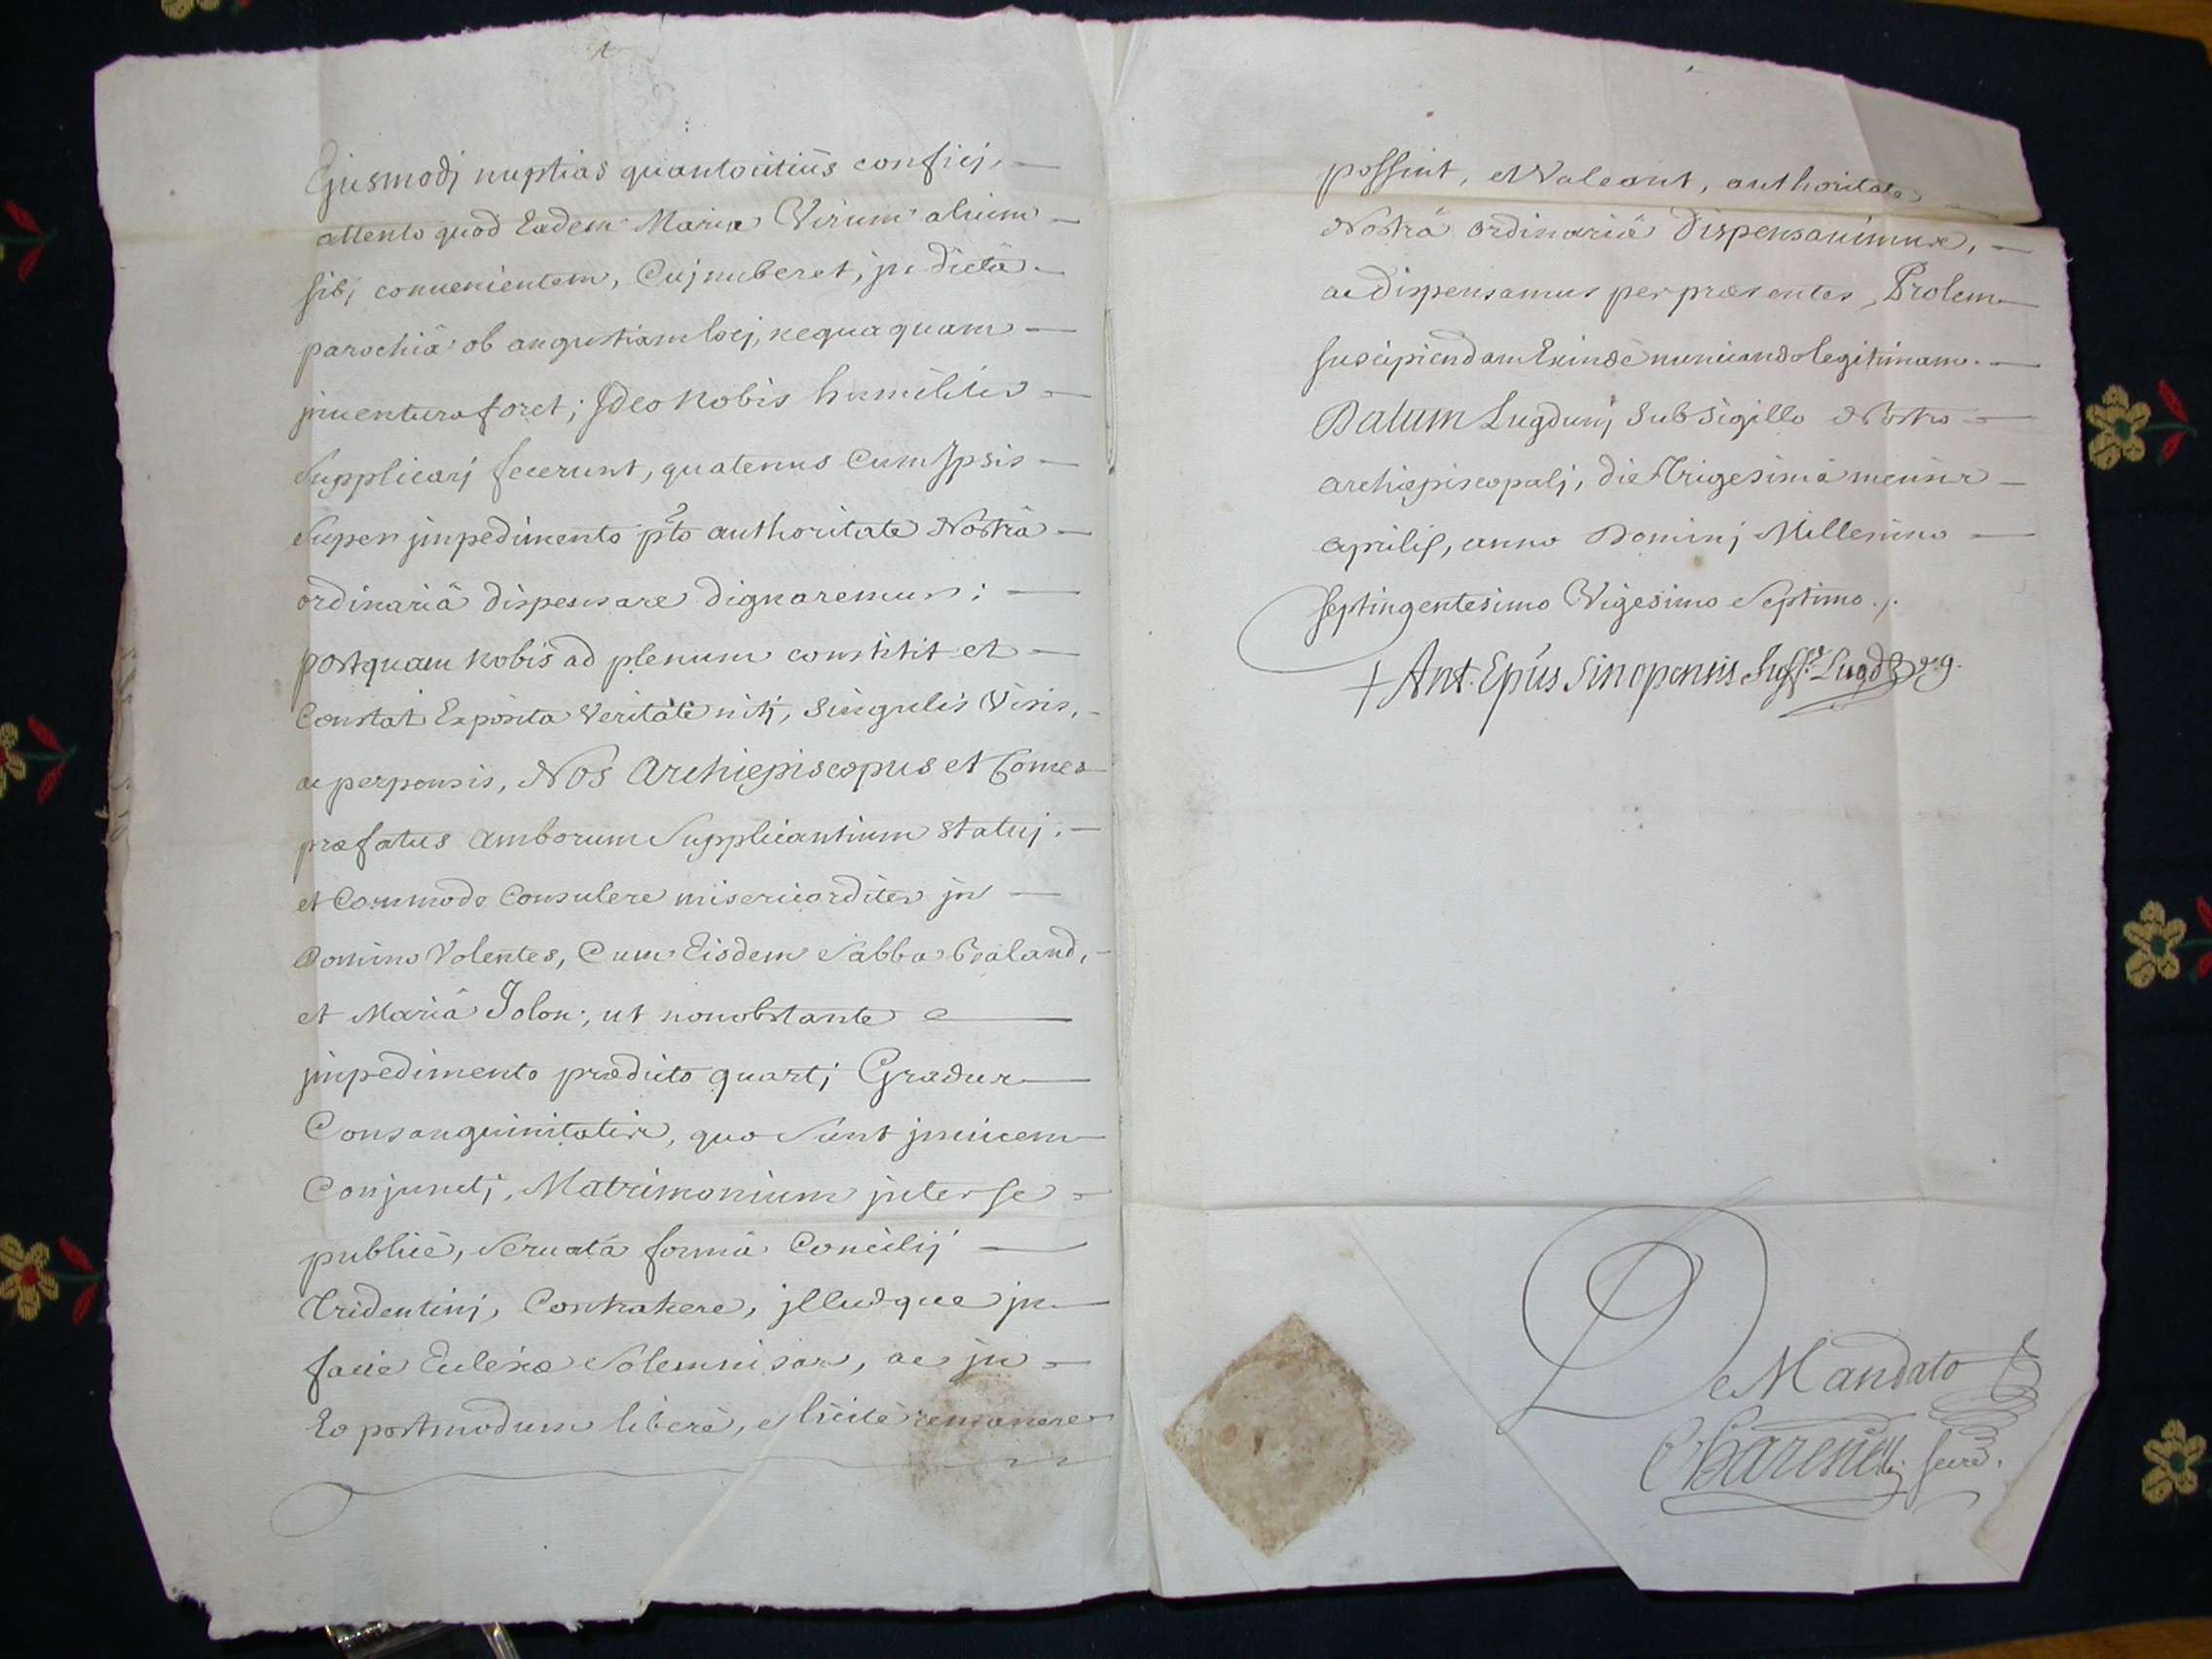 Ejusmodj nuptias quantocitiùs conficj,
attento quod Eadem Maria Virum alium
sibj conuenientem, Cuj nuberet, jn dictâ
parochiâ ob angustiam locj, nequaquam
jnuentura foret; Ideo Nobis humiliter
Supplicarj fecerunt, quatenus Cum Ipsis
Super jmpedimento pto authoritate Nostrâ
ordinariâ dispensare dignaremur;
postquam Nobis ad plenum constitit et
Constat Exposita Veritate nitj, Singulis Visis,
ac perpensis, Nos Archiepiscopus et Comes
præfatus Amborum Supplicantium Statuj,
et Commodo Consulere misericorditer jn
Domino Volentes, Cum Eisdem Sabba Braland,
et Mariâ Jolon, ut nonobstante
jmpedimento prædicto quartj Gradus
Consanguinitatis, quo Sunt jnuicem
Conjunctj, Matrimonium jnter se
publicè, Seruatâ formâ Concilij
Tridentinj, Contrahere, jlludque jn
facie Eclesiæ Solemnisare, ac jn
Eo postmodum liberè, et licitè remanere
possint, et Valeant, authoritate
Nostrâ ordinariâ Dispensauimus,
ac dispensamus per præsentes, Prolem
suscipiendam Exindè nunciando legitimam.
Datum Lugdunj Sub Sigillo Nostro
archiepiscopalj, die Trigesimâ mensis
aprilis, anno Dominj Millesimo
septingentesimo Vigesimo Septimo.
+ Ant. Epûs Sinopensis Suff. Lugd.
De Mandato
secre.